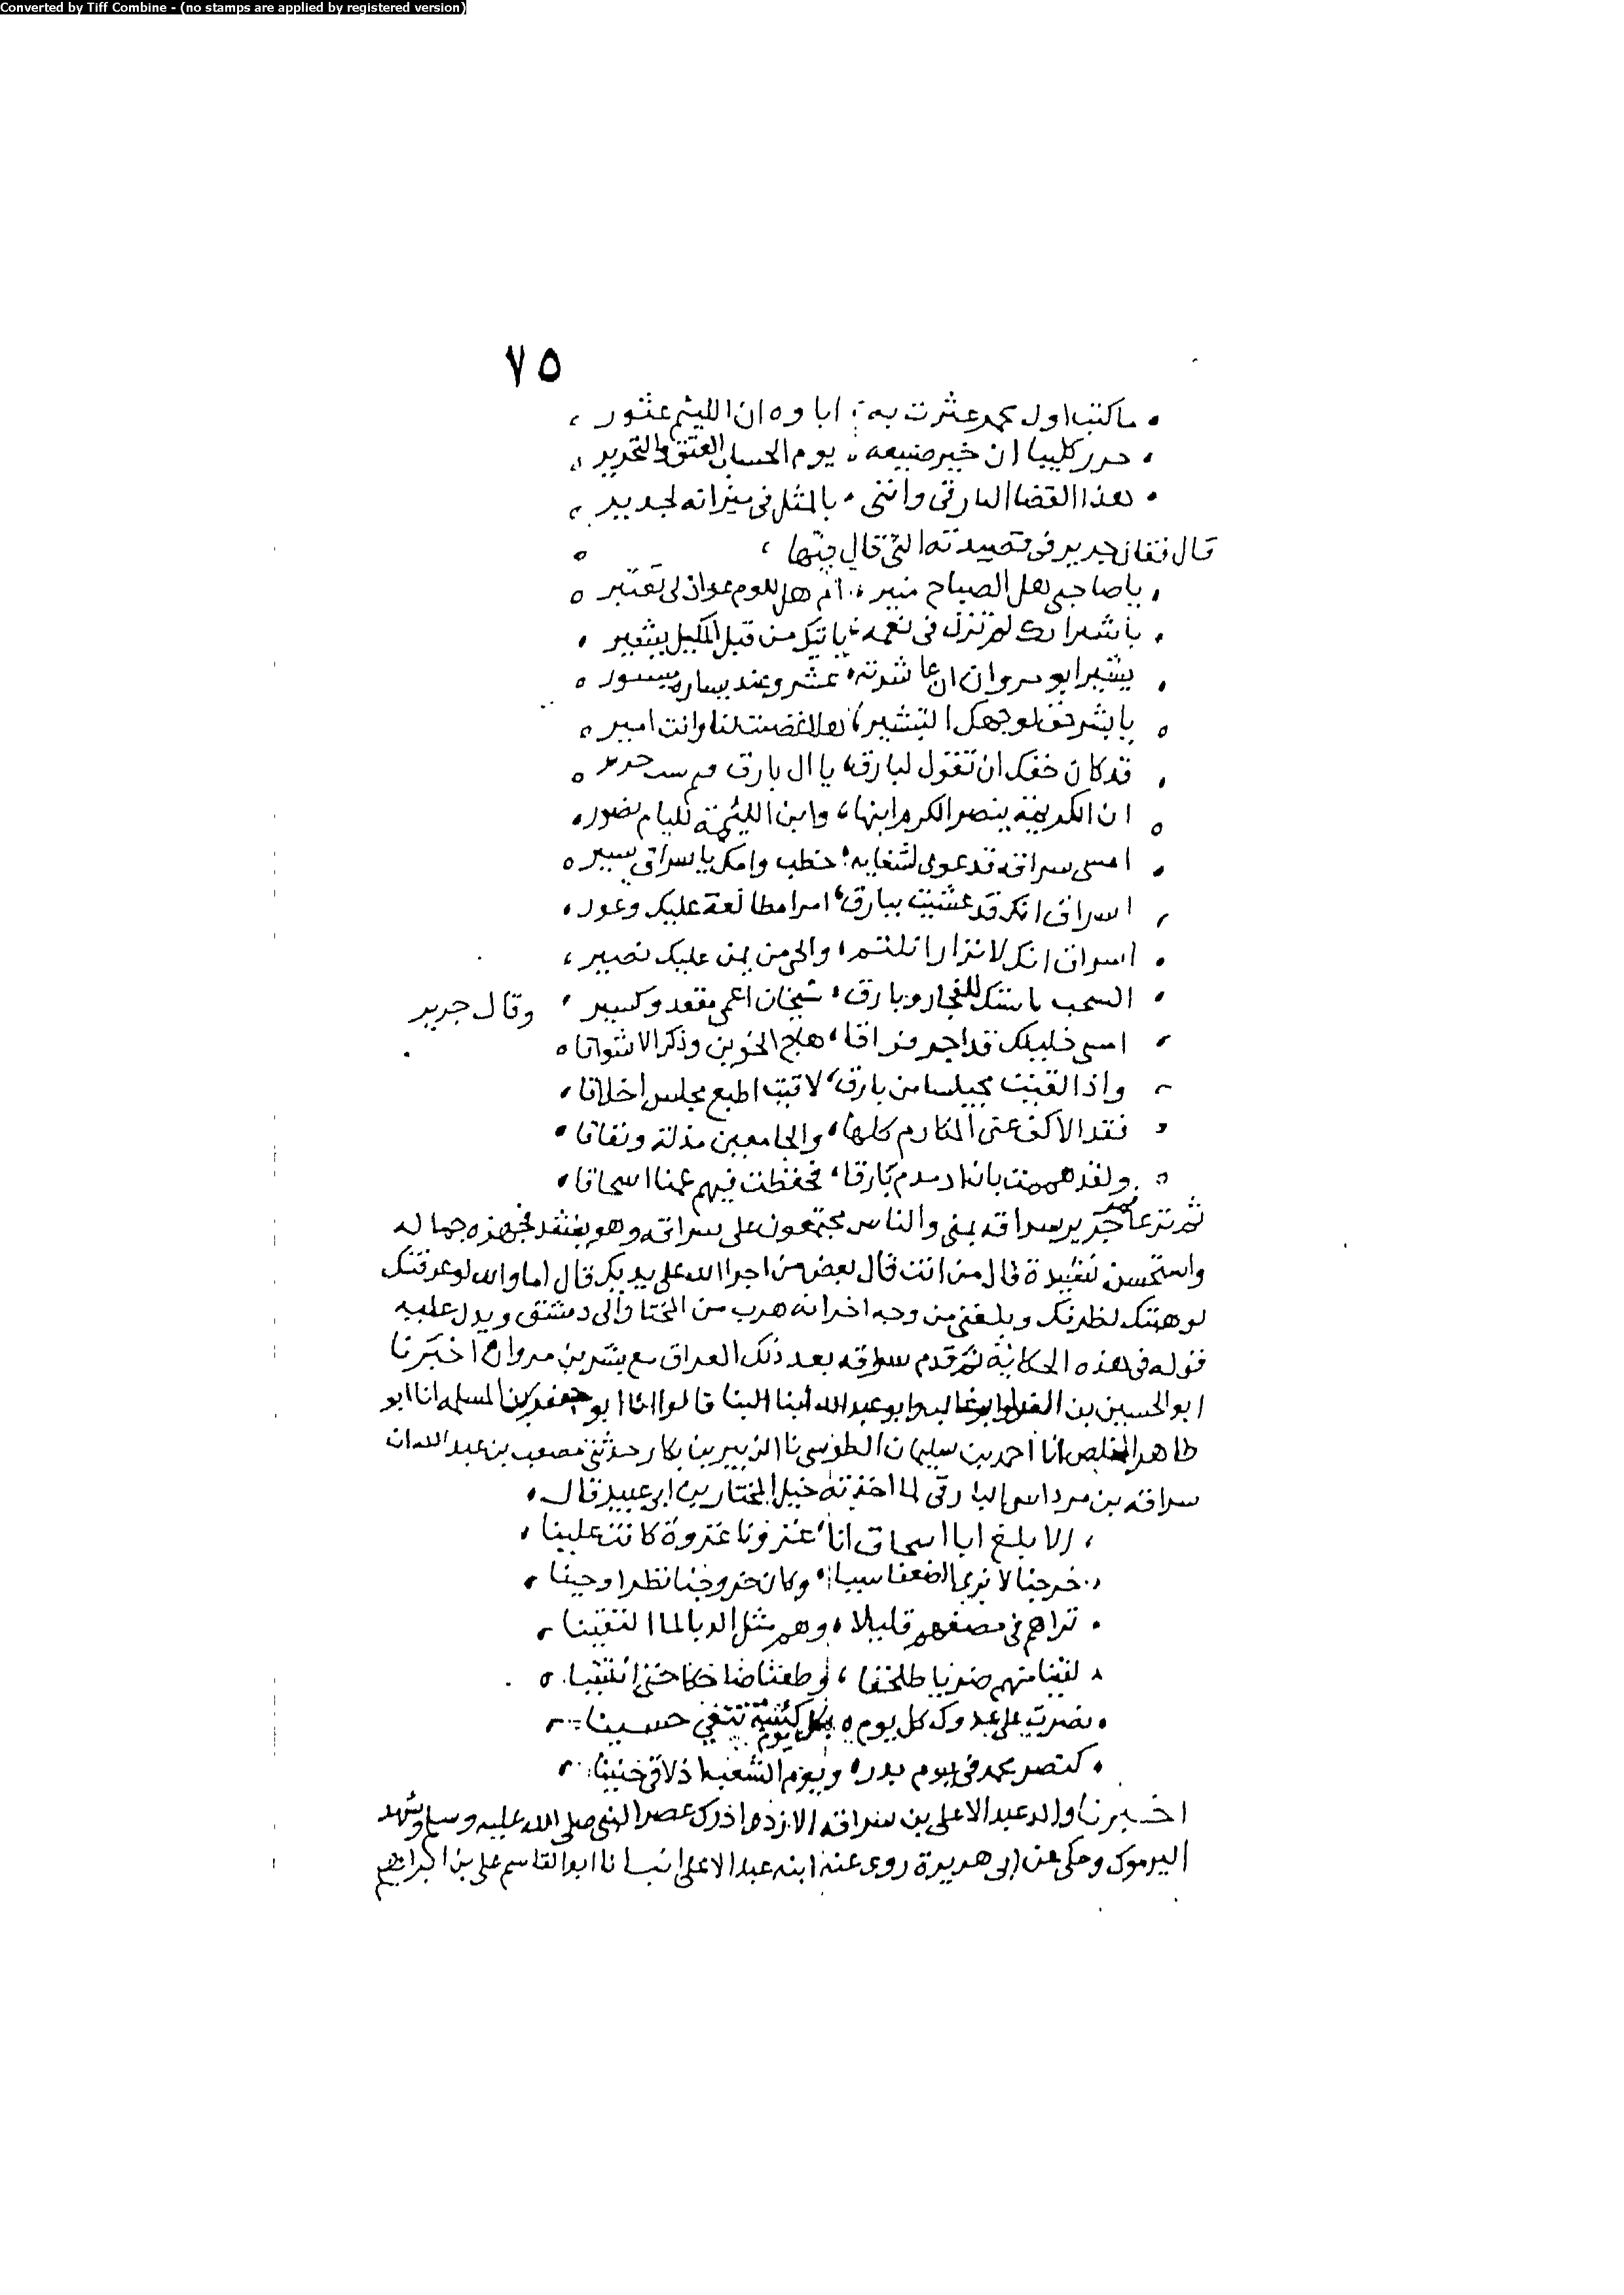 Converted by Tiff Combine - (no stamps are applied by registered version)
٧٥
ما كنت اول محمر عثرت به اباوه ان اللئيم عثور
حرر كليبا ان خير صنيعه يوم الحساب العتق والتحرير
هذا القضا البارقي وانني بالمثل في ميزانه لجدير
قال فقال جرير في قصيدته التي قال فيها
يا صاحبي هل الصباح منير ام هل للوم عواذلي تفتير
يا بشر انك لم تزل في نعمة ياتيك من قبل المليك بشير
بشير ابو مروان ان عاشرته عسر وعند يساره ميسور
يا بشر حق لوجهك التبشير هلا غضبت لنا وانت امير
قد كان حقك ان تقول لبارق يا ال بارق فيم سب جرير
ان الكريمة ينصر الكرم ابنها وابن اللئيمة لليام نصور
امسى سراقة قد عوى لشقايه خطب وامك يا سراق يسير
اسراق انك قد غشيت ببارق امرا مطالعه عليك وعور
اسراق انك لا نزارا نلتم والحي من يمن عليك نصير
اكسحت باستك للفخار وبارق شيخان اعمى مقعد وكسير وقال جرير
امسى خليلك قد اجد فراقا هاج الحزين وذكر الاشواقا
واذا لقيت مجيلسا من بارق لاقيت اطبع مجلس اخلاقا
فقد الاكف عن المكارم كلها والجامعين مذلة ونفاقا
ولقد هممت بان ادمدم بارقا فحفظت فيهم عمنا اسحاقا
ثم نزعا جرير سراقه بمنى والناس مجتمعون على سراقه وهو ينشد فجهره جماله
واستحسن نشيده قال من انت قال بعض من اخزا الله على يديك قال اما والله لو عرفتك
لوهبتك لظرفك وبلغني من وجه اخر انه هرب من المختار الى دمشق ويدل عليه
قوله في هذه الحكاية ثم قدم سراقه بعد ذلك العراق مع بشر بن مروان اخبرنا
ابو الحسين بن الفرا وابو غالب وابو عبدالله ابنا البنا قالوا انا ابو جعفر بن المسلمه انا ابو
طاهر المخلص انا احمد بن سليمان الطوسي نا الزبير بن بكار حدثني مصعب بن عبدالله ان
سراقه بن مرداس البارقي لما اخذته خيل المختار بن ابي عبيد قال
الا بلغ ابا اسحاق انا غزونا غزوة كانت علينا
خرجنا لا نرى الضعفا سيا وكان خروجنا نظرا وحينا
تراهم في مصفهم قليلا وهم مثل الدبا لما التقينا
لقينا منهم ضربا طلخفا وطعنا ضاحكا حتى انثنينا
نصرت على عدوك كل يوم بكل كتيبة تنعى حسينا
كنصر محمد في يوم بدر ويوم الشعب اذ لاقى حنينا
اخبرنا والد عبد الاعلى بن سراقه الازدي ادرك عصر النبي صلى الله عليه وسلم وشهد
اليرموك وحكى عن ابي هريرة روى عنه ابنه عبد الاعلى انبانا ابو القاسم علي بن ابراهيم